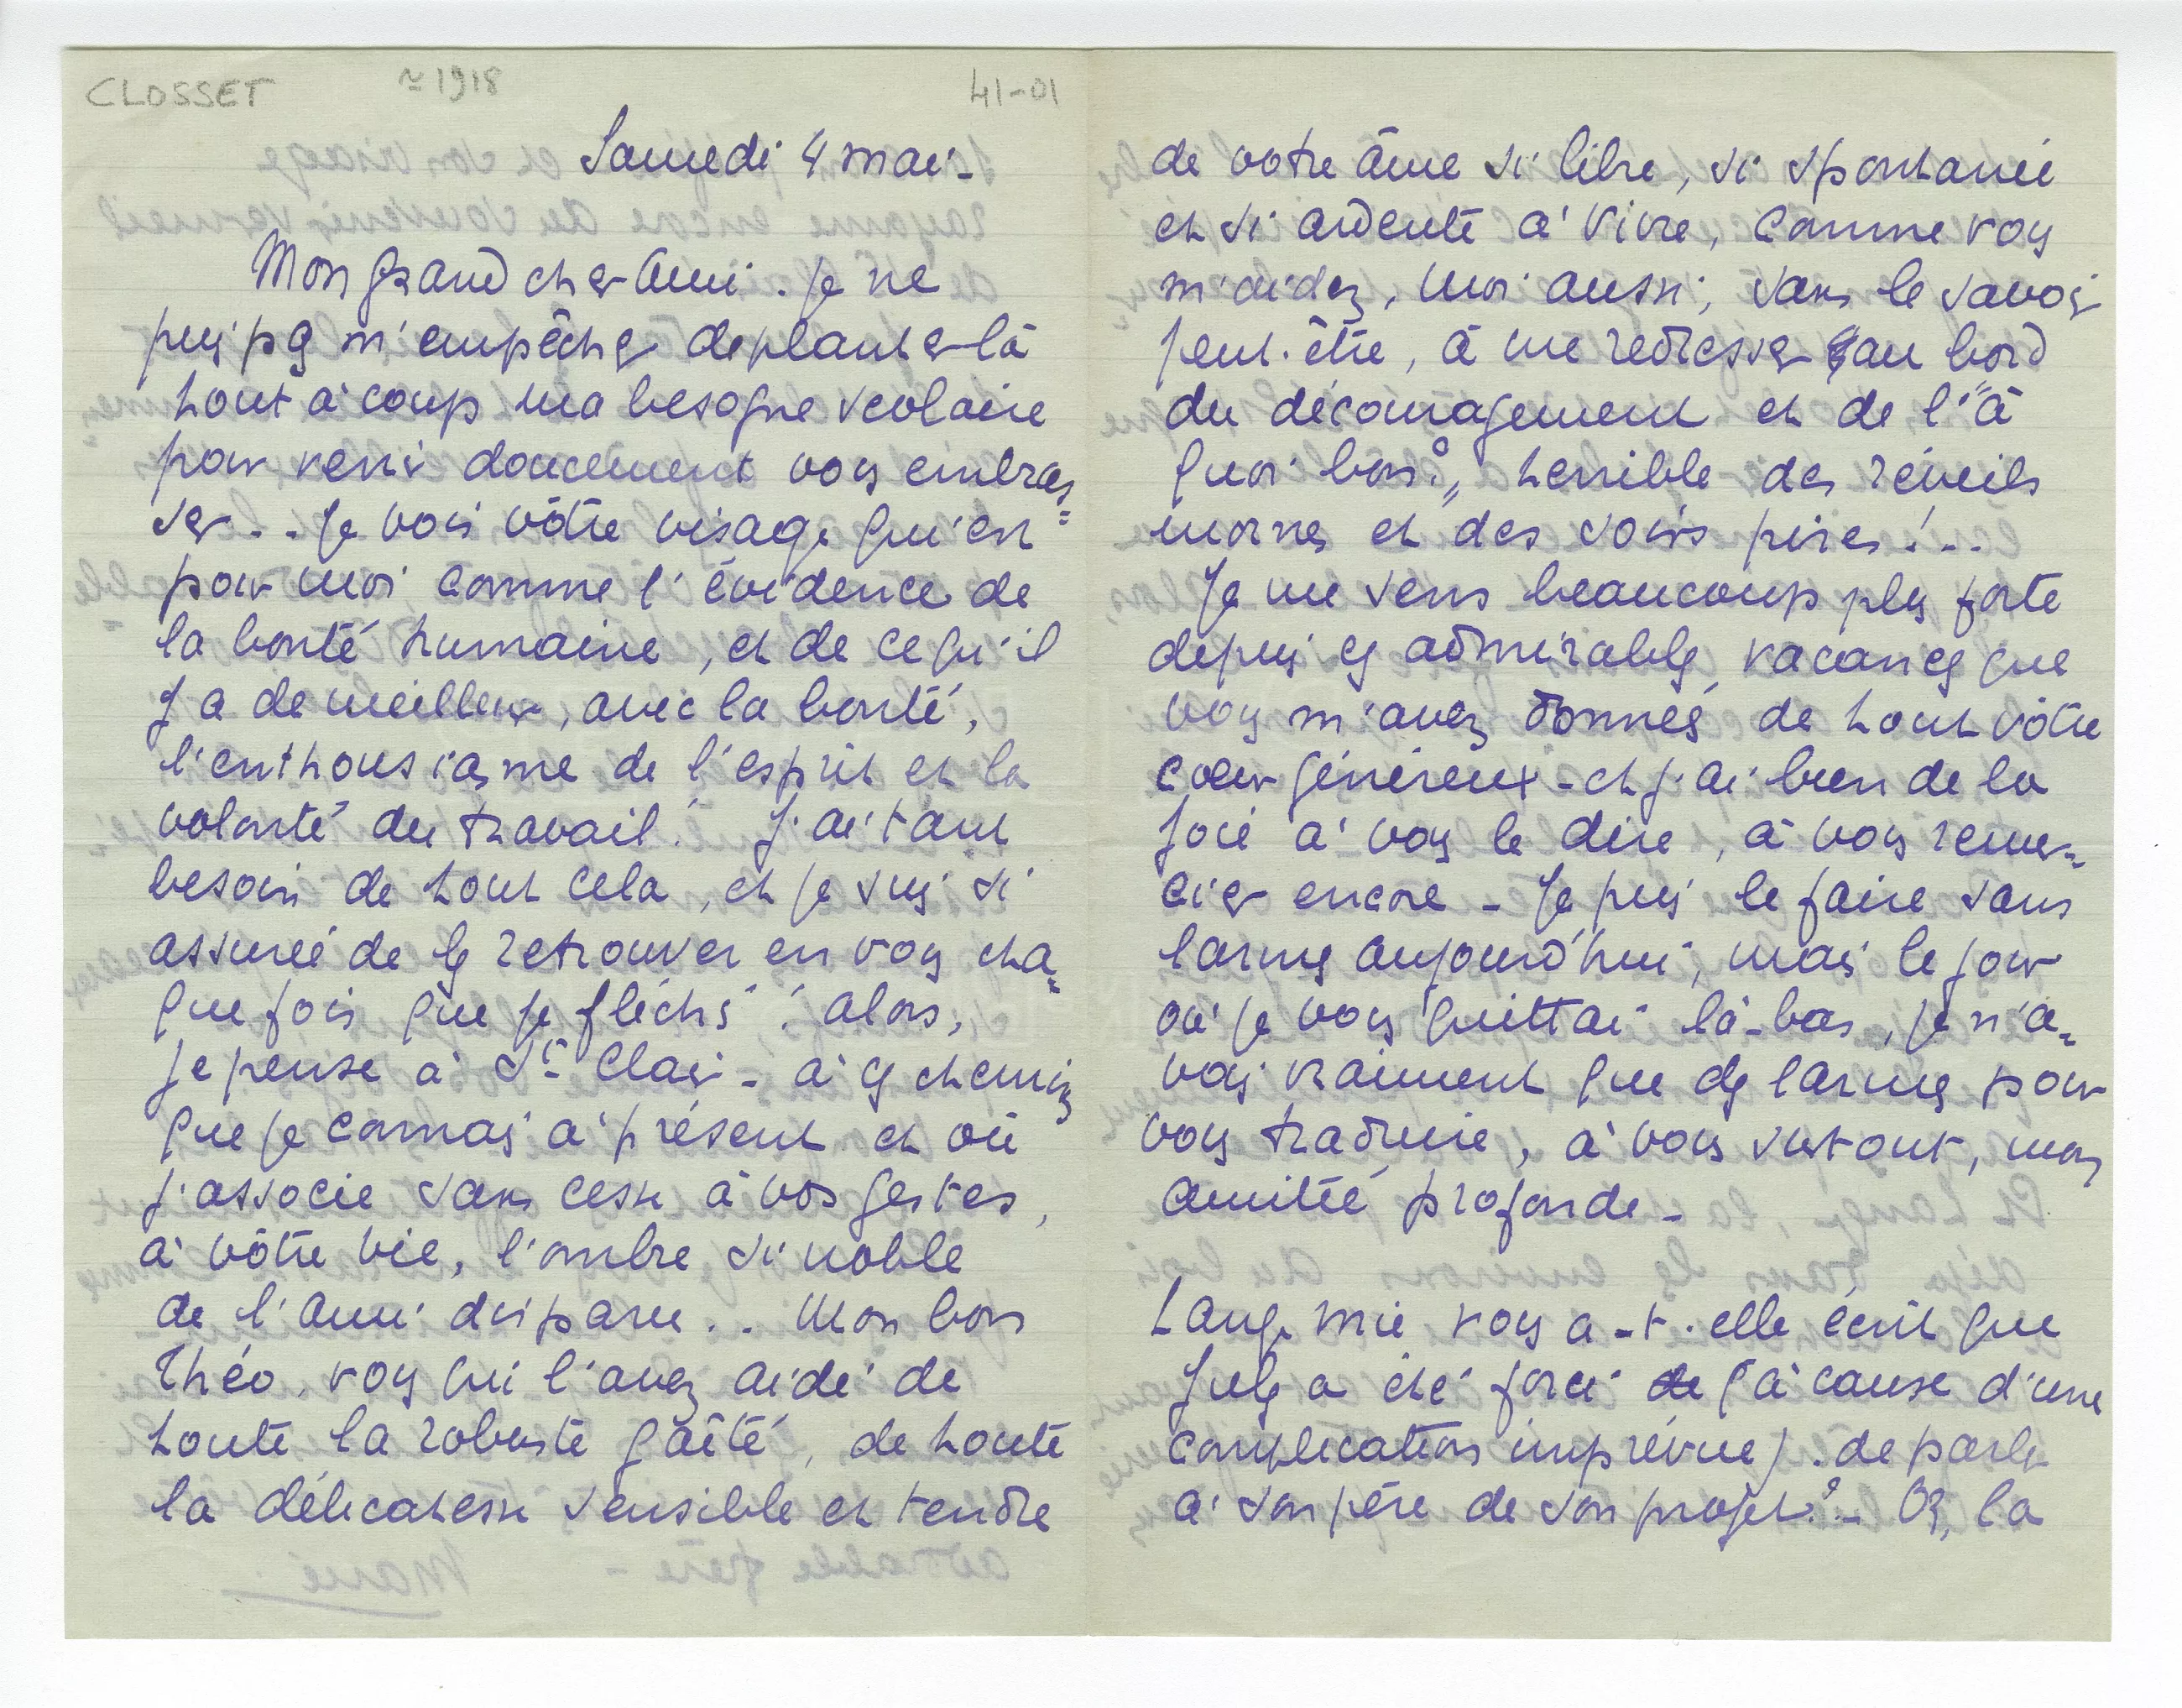 CLOSSET ≃ 1918 41-01
Samedi 4 mai -
Mon grand cher Ami. Je ne
puis pas m'empêcher de planter là
tout à coup ma besogne scolaire
pour venir doucement vous embras=
ser - - Je vois vôtre visage qui est
pour moi comme l'évidence de
la bonté humaine, et de ce qu'il
y a de meilleur, avec la bonté,
l'enthousiasme de l'esprit et la
volonté du travail ! J'ai tant
besoin de tout cela, et je suis si
assurée de les retrouver en vous cha=
que fois que je fléchis ! alors,
je pense à St Clair - à ces chemins
que je connais à présent et où
j'associe sans cesse à vos gestes,
à vôtre vie, l'ombre si noble
de l'ami disparu . . Mon bon
Théo, vous qui l'avez aidé de
toute la robuste gaîté, de toute
la délicatesse sensible et tendre
de votre âme si libre, si spontanée
et si ardente à vivre, comme vous
m'aidez, moi aussi, sans le savoir
peut-être, à me redresser au bord
du découragement et de l'"à
quoi bon?" terrible des réveils
mornes et des soirs pires ! - -
Je me sens beaucoup plus forte
depuis ces admirables vacances que
vous m'avez données de tout vôtre
coeur généreux - et j'ai bien de la
joie à vous le dire, à vous remer=
cier encore - Je puis le faire sans
larmes aujourd'hui, mais le jour
où je vous quittai là-bas, je n'a=
vais vraiment que des larmes pour
vous traduire, à vous surtout, mon
amitié profonde -
Lange mie vous a-t-elle écrit que
Jules a été forcé de (à cause d'une
complication imprévue) de parler
à son père de son projet ? - Or, la